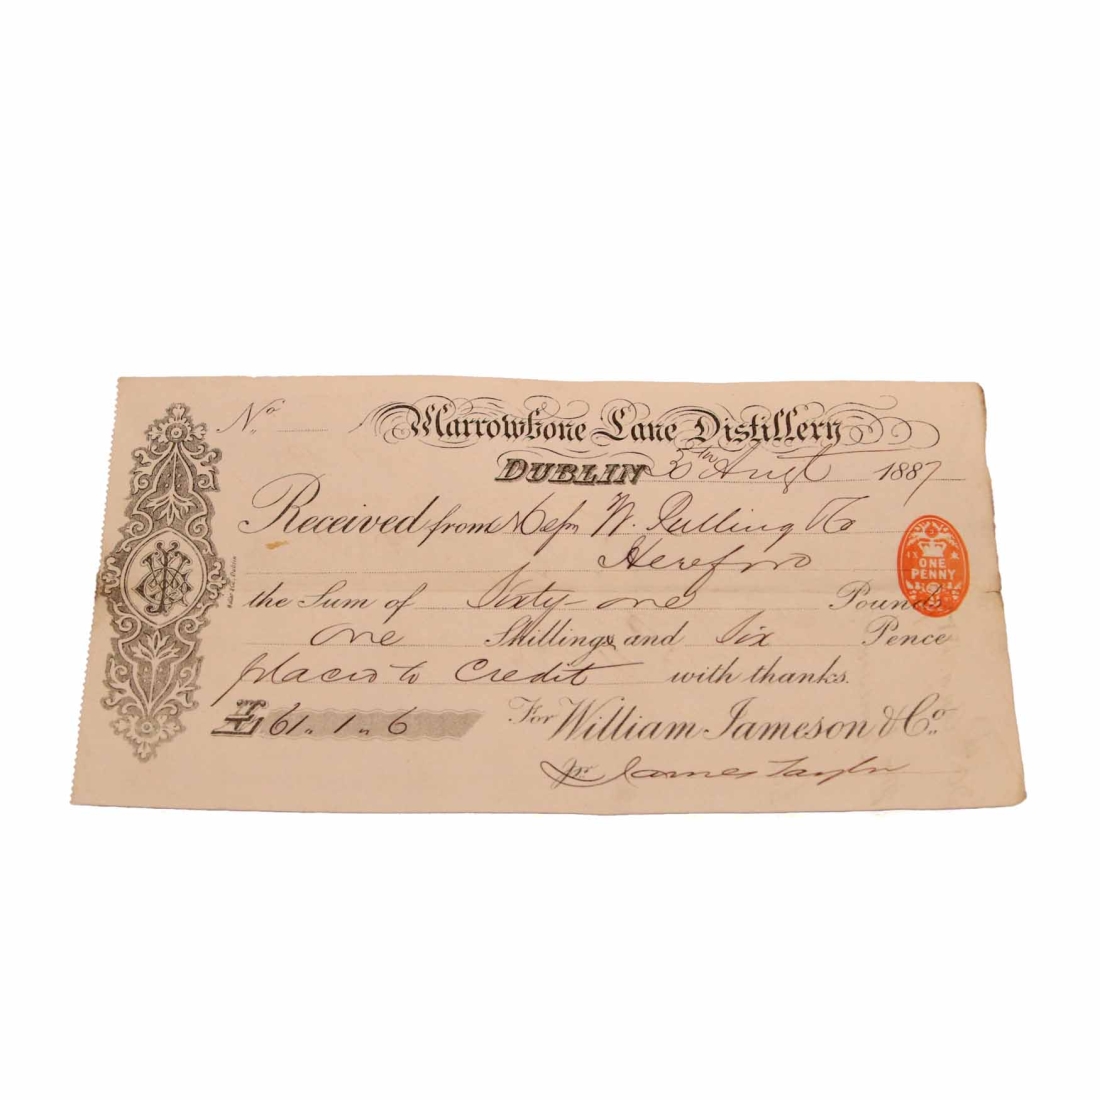 No.
Marrowbone Lane Distillery
DUBLIN Augt 1887
Received from W. Pulling & Co
Hereford
the Sum of Sixty-one Pounds
One Shillings and Six Pence
placed to Credit with thanks.
£61 " 1 " 6 For William Jameson & Co.
pr James Taylor
ONE
PENNY